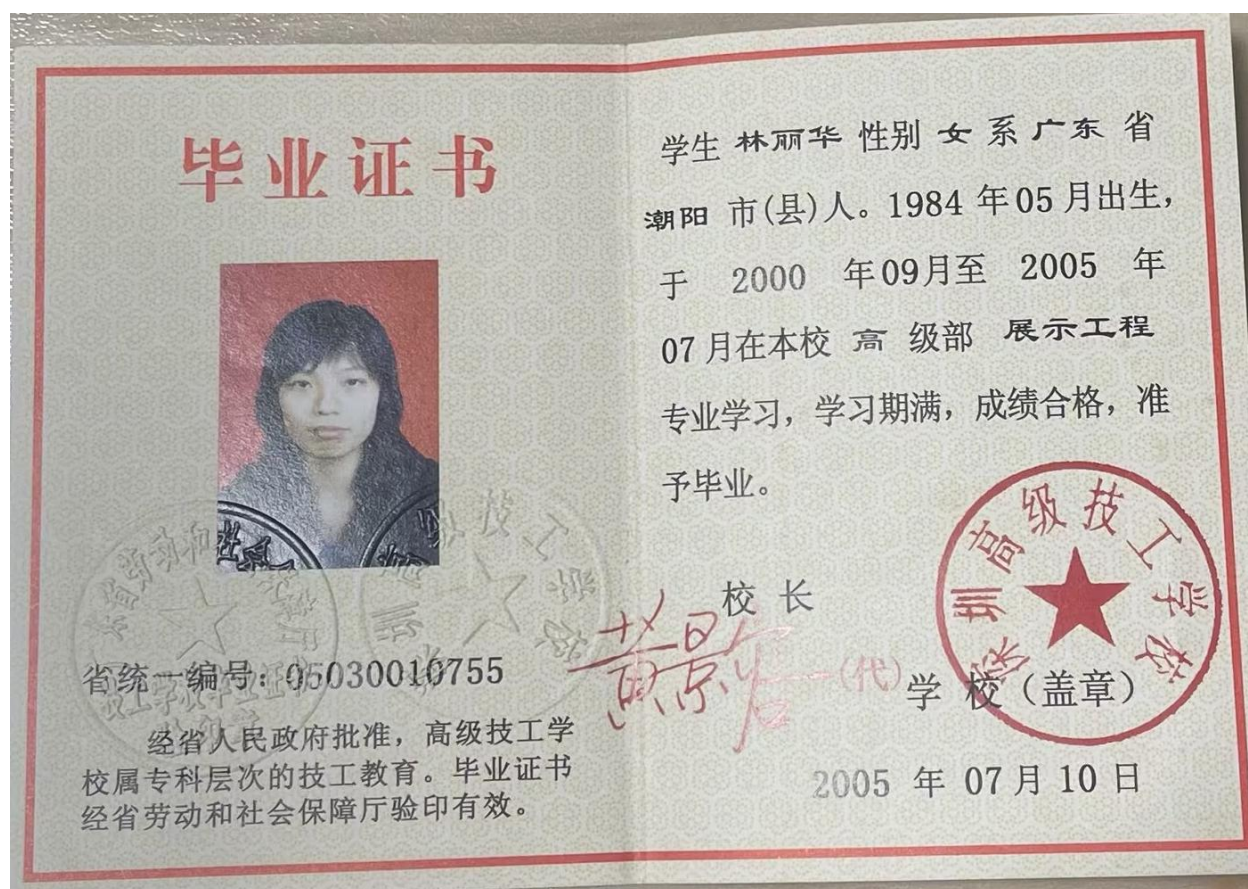 毕业证书
省统一编号：05030010755
经省人民政府批准，高级技工学
校属专科层次的技工教育。毕业证书
经省劳动和社会保障厅验印有效。
学生 林丽华 性别 女 系 广东 省
潮阳 市(县)人。1984 年 05 月出生，
于 2000 年 09月至 2005 年
07 月在本校 高 级部 展示工程
专业学习，学习期满，成绩合格，准
予毕业。
校 长
黄景容(代)
学 校（盖章）
深圳高级技工学校
2005 年 07 月 10 日